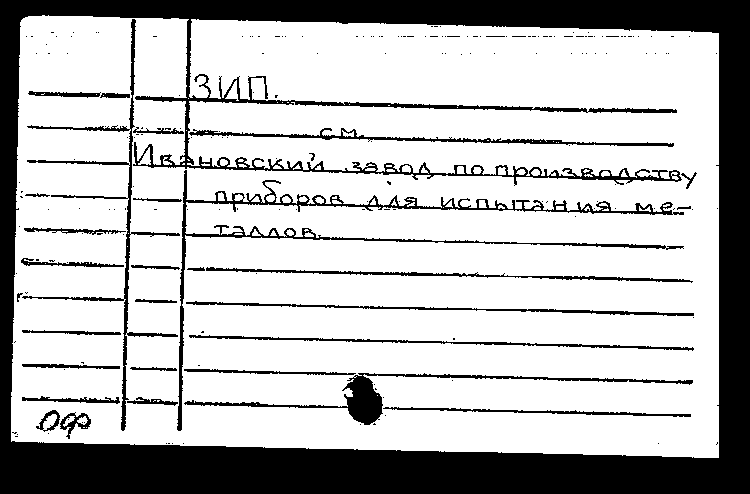 ЗИП.
см.
Ивановский завод по производству
приборов для испытания ме-
таллов.
ОФ